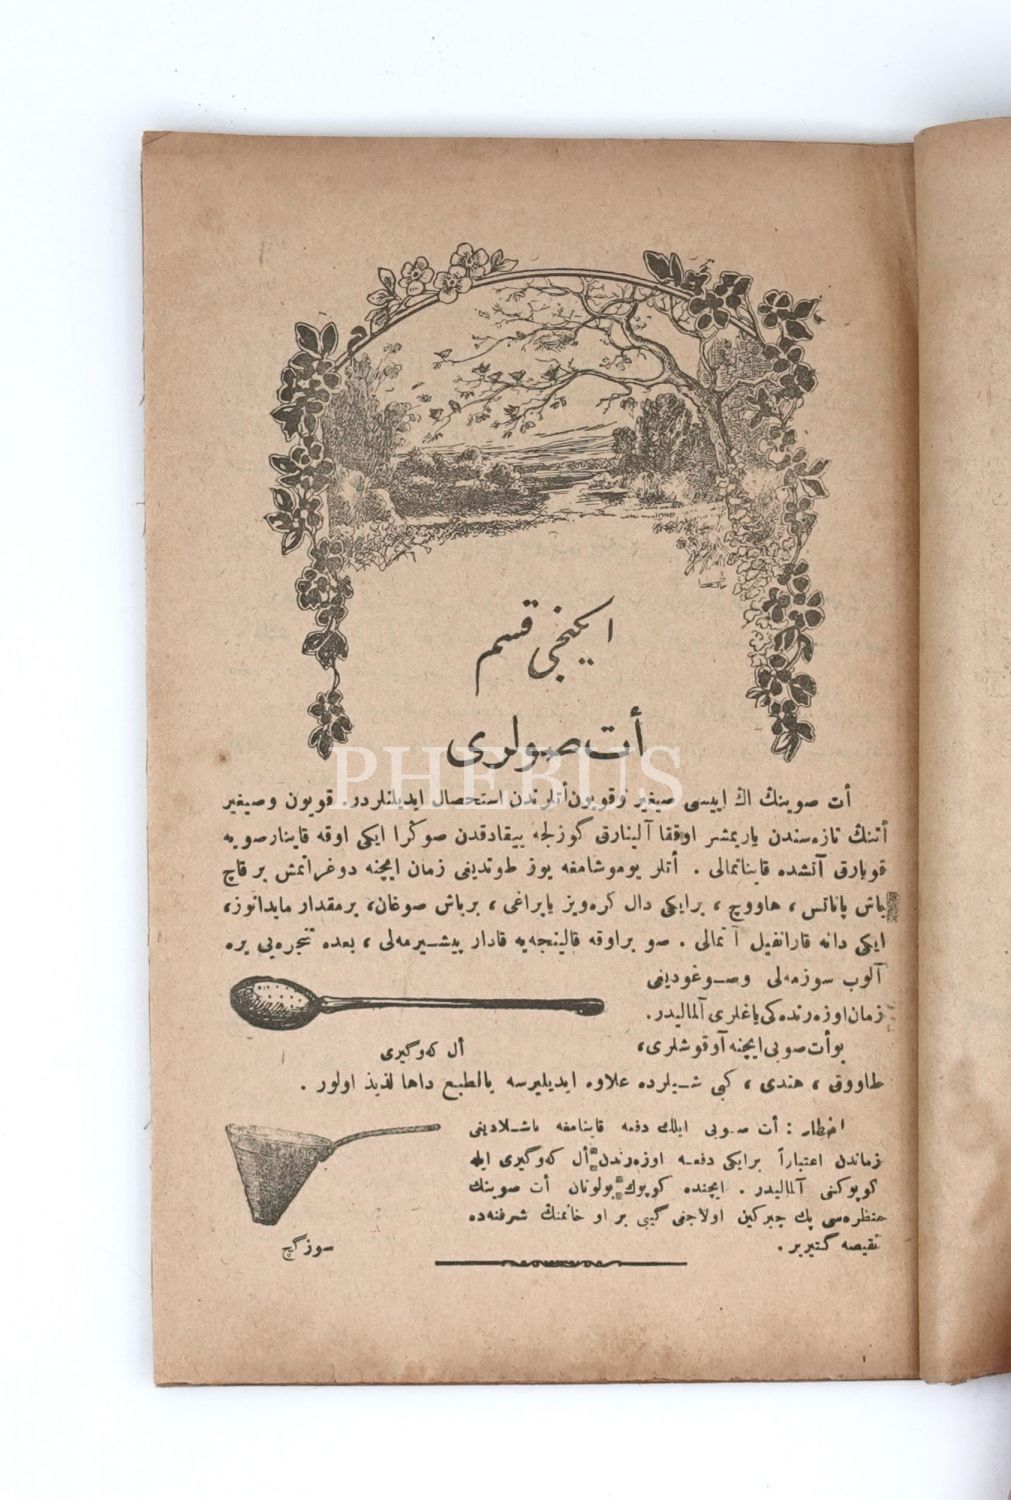 ایکنجی قسم
أت صولری
PHEBUS
أت صوینڭ اڭ اییسی صیغیر وقویون أتلرندن استحصال ایدیلنلردر. قویون وصیغیر
أتنڭ تازه‌سندن یاریمشر اوقفا آلینارق گوزلجه ییقادقدن صوڭرا ایکی اوقه قاینار صویه
قویارق آتشده قایناتمالی . أتلر یوموشامغه یوز طوتدیغی زمان ایچنه دوغرانمش بر قاچ
باش پاتاتس، هاووچ، برایکی دال کره‌ویز یاپراغی، برباش صوغان، برمقدار مایدانوز،
ایکی دانه قارانفیل آتمالی . صو براوقه قالینجه‌یه قادار پیشیرمه‌لی، بعده تنجره‌یی یره
آلوب سوزمه‌لی وصوغودیغی
زمان اوزه‌رنده‌کی یاغلری آلمالیدر.
أل که‌وگیری
بوأت صویی ایچنه آوقوشلری،
طاووق، هندی، کبی شیلرده علاوه ایدیلیرسه بالطبع داها لذیذ اولور .
اخطار : أت صویی ایلك دفعه قاینامغه باشلادیغی
زماندن اعتباراً برایکی دفعه اوزه‌رندن أل که‌وگیری ایله
کوپوکنی آلمالیدر . ایچنده کوپوك بولونان أت صوینڭ
منظره‌سی پك چیرکین اولاجغی گیبی بر او خانمنڭ شرفنه‌ده
نقیصه گتیریر .
سوزگچ